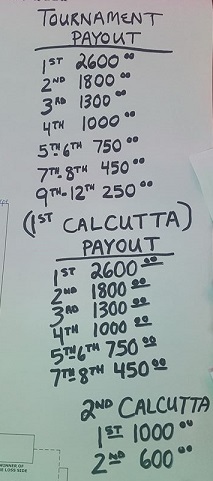 TOURNAMENT
PAYOUT
1ST 2600.00
2ND 1800.00
3RD 1300.00
4TH 1000.00
5TH-6TH 750.00
7TH-8TH 450.00
9TH-12TH 250.00
(1ST CALCUTTA)
PAYOUT
1ST 2600.00
2ND 1800.00
3RD 1300.00
4TH 1000.00
5TH/6TH 750.00
7TH/8TH 450.00
2ND CALCUTTA
1ST 1000.00
2ND 600.00
WINNER OF
THE LOSS SIDE